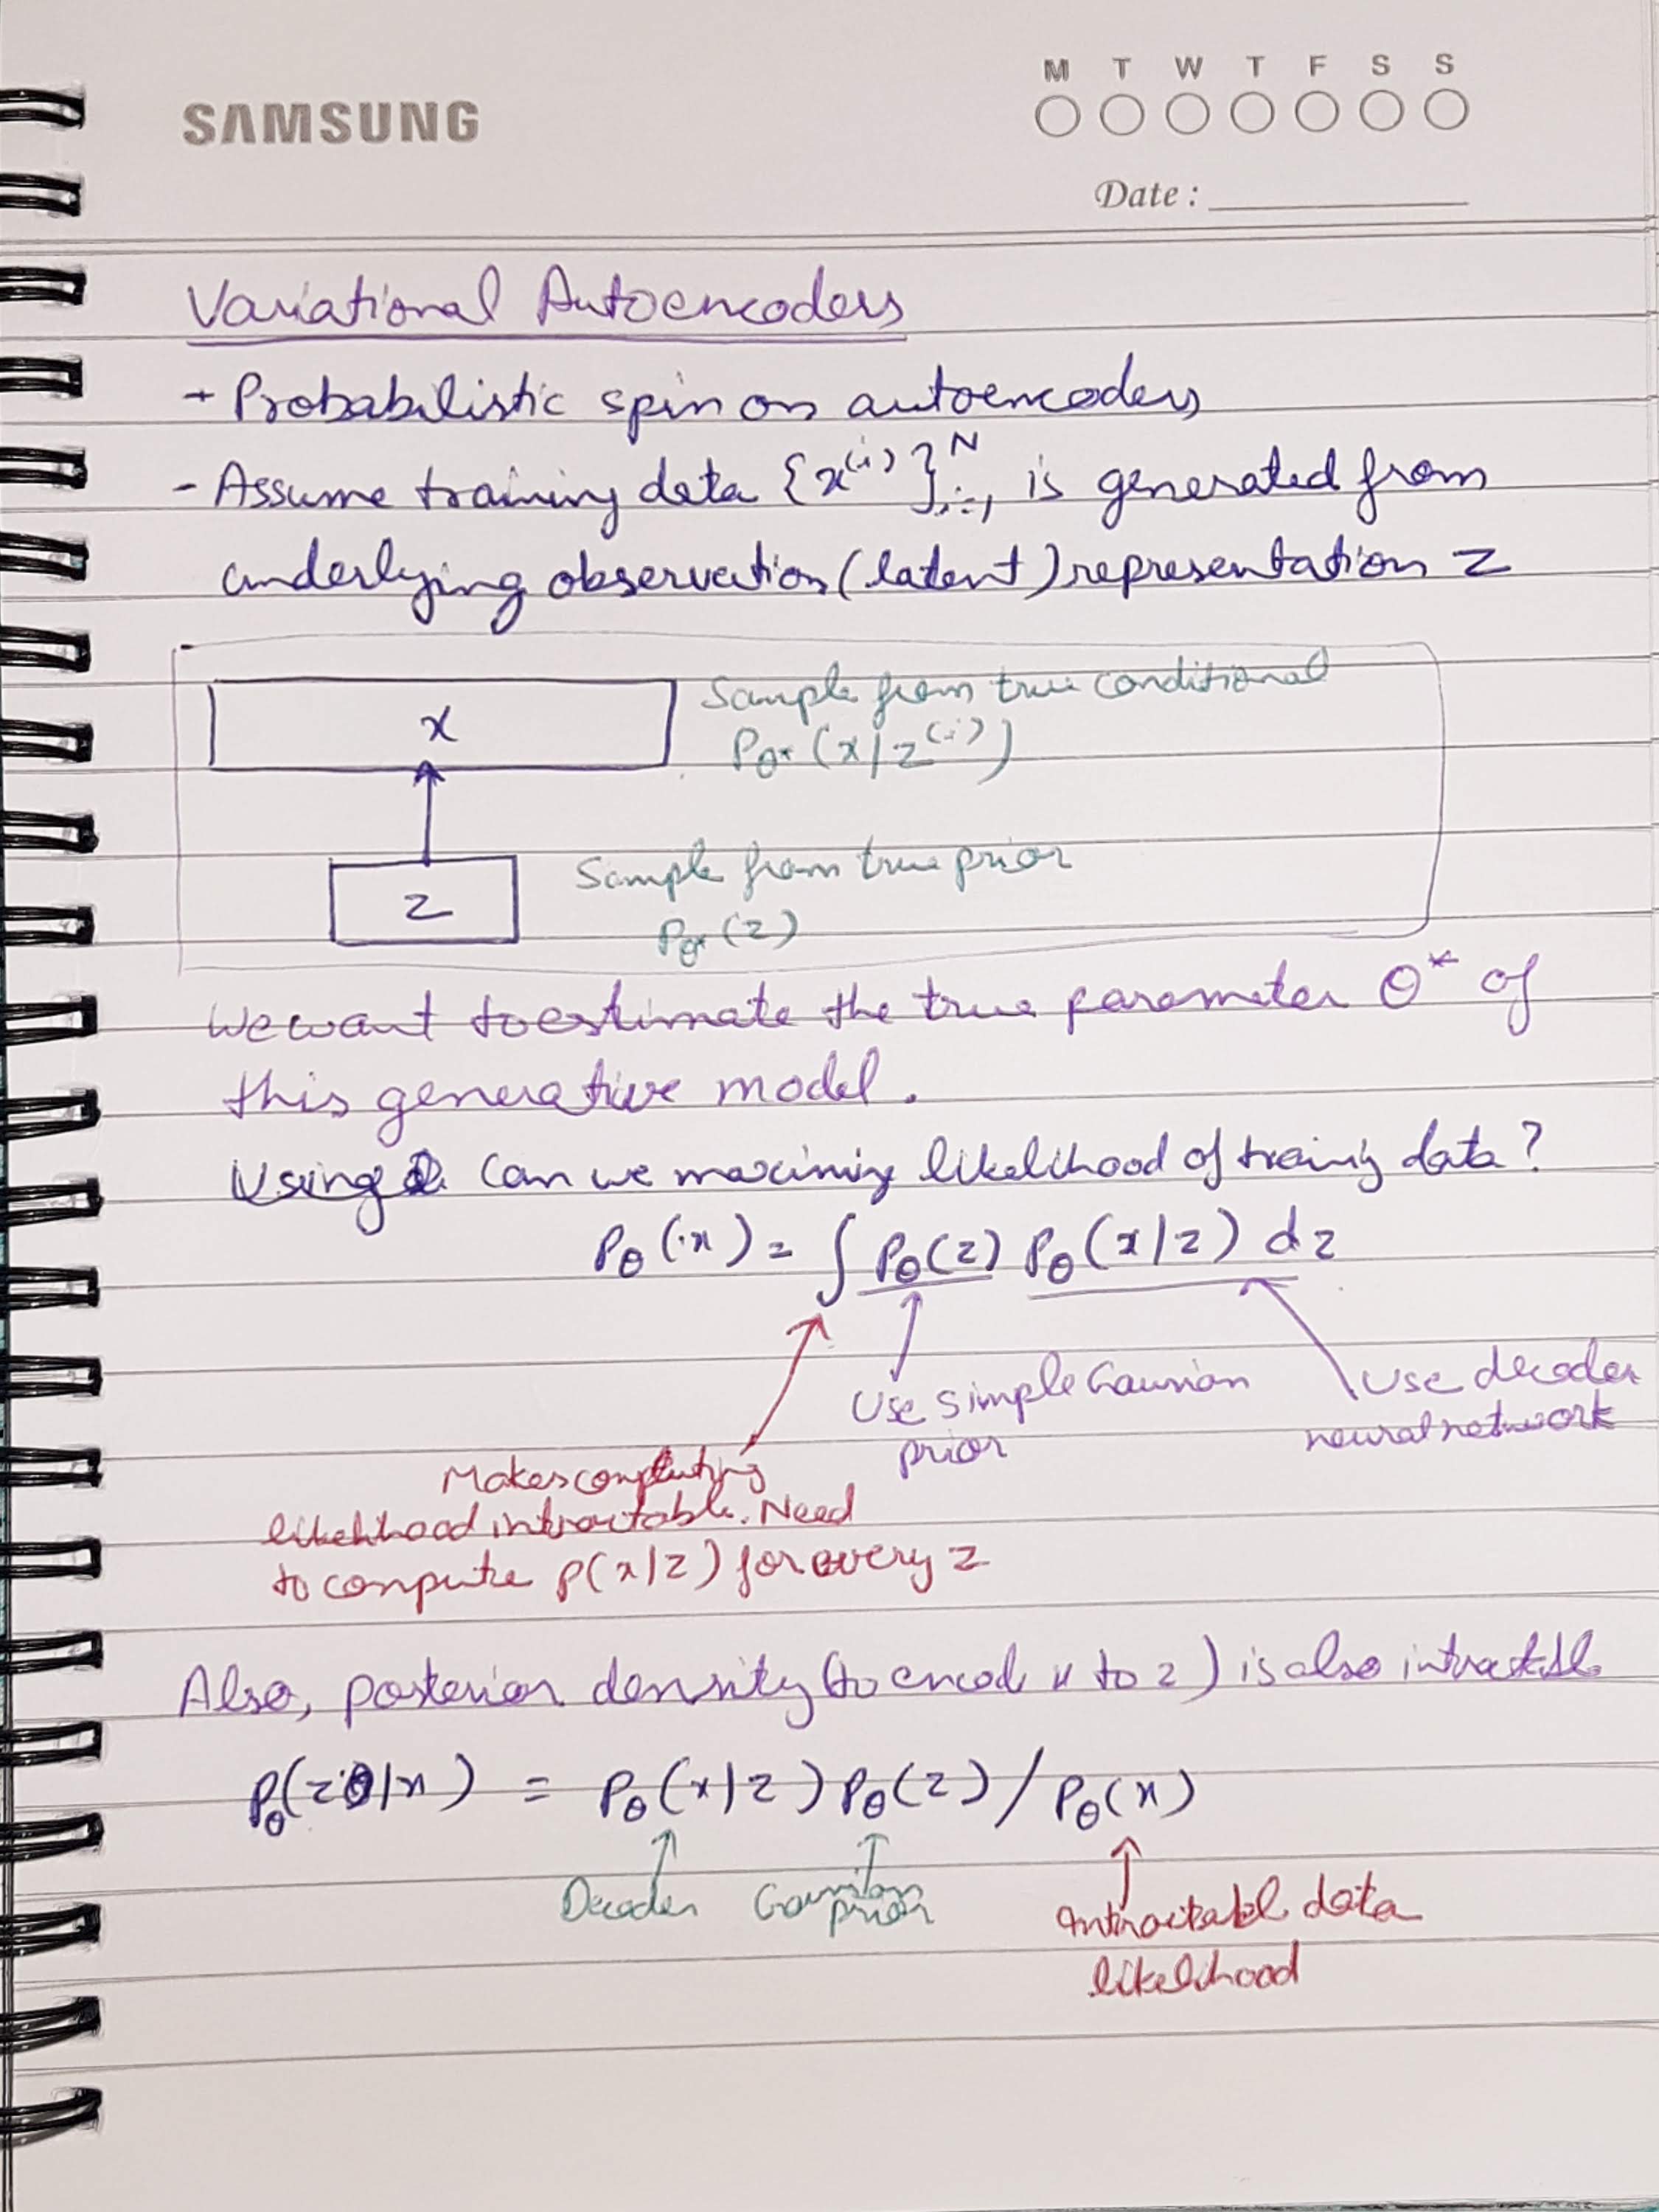 SAMSUNG
M T W T F S S
Date :
Variational Autoencoders
- Probabilistic spin on autoencoders
- Assume training data {x^(i)}^N_i=1 is generated from
underlying observation (latent) representation z
x
Sample from true conditional
Pθ* (x|z^(i))
z
Sample from true prior
Pθ* (z)
We want to estimate the true parameter θ* of
this generative model.
Using Can we maximize likelihood of training data?
Pθ (x) = ∫ Pθ(z) Pθ(x|z) dz
Use simple Gaussian
prior
Use decoder
neural network
Makes computing
likelihood intractable. Need
to compute p(x|z) for every z
Also, posterior density (to encode x to z) is also intractable
Pθ(z|x) = Pθ(x|z) Pθ(z) / Pθ(x)
Decoder
Gaussian
prior
Intractabl data
likelihood